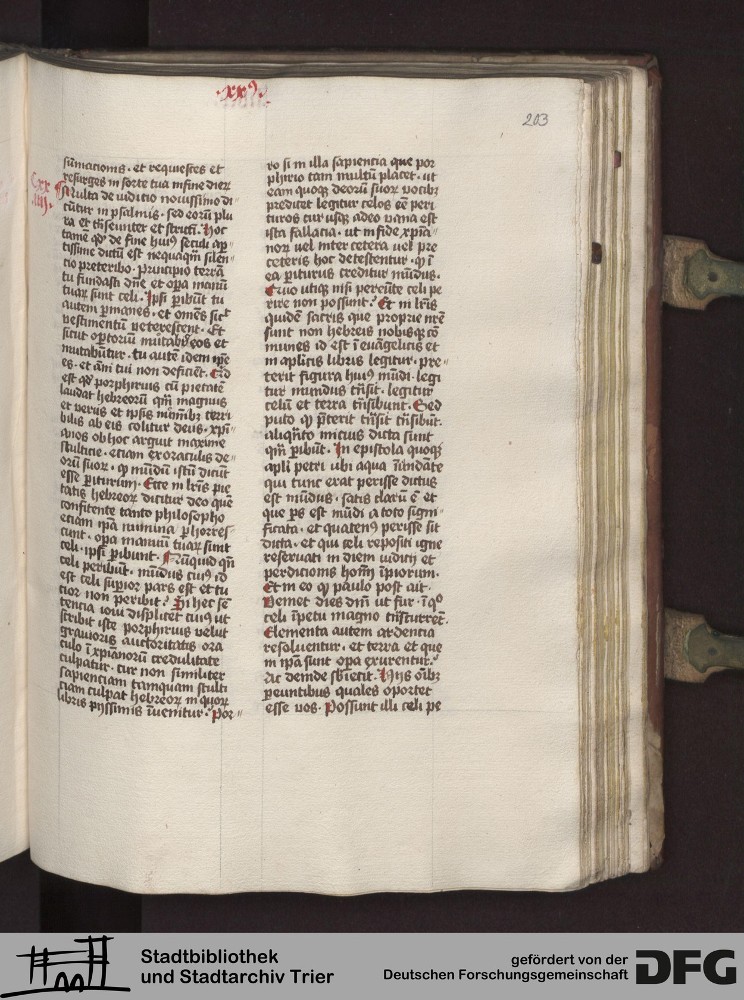 ·xxꝰ·
203
Cxx
iiij·
sūmacionis · et requiesces et
resurges in sorte tua in fine dierꝝ
Multa de iudicio nouissimo di
cūtur in psalmis · sed eorū plu
ra et trāseunter et strictī · Hoc
tamē qd̓ de fine huiꝰ seculi ap
tissime dictū est nequaqm̄ silen
cio preteribo · Principio terrā
tu fundasti dn̄e et opa manū
tuaꝝ sunt celi · Ipsi ꝑibūt tu
autem ꝑmanes · et omēs sict
vestimentū veterescent · Et
sicut oꝑtoriū mutabꝭ eos et
mutabūtur · tu autē idem ipse
es · et anī tui non deficiēt · Quid
est qd̓ porphirius cū pietatē
laudat hebreorū qm̄ magnus
et verus et ipsis numībꝫ terri
bilis ab eis colitur deus · xp̄i
anos ob hoc arguit maxime
stulticie · etiam ex oraculis de
orū suoꝝ · qꝫ mūdū istū dicūt
esse ꝑiturum · Ecce in lrīs pie
tatis hebreoꝝ dicitur deo quē
confitente tanto philosopho
etiam ip̄a numina ꝑhorres
cunt · opa manuū tuaꝝ sunt
celi · ipsi ꝑibunt · Nunquid qn̄
celi peribūt · mūdus cuiꝰ id
est celi suꝑior pars est et tu
cior non peribit · Si hec sē
tencia ioui displicet cuiꝰ ut
scribit iste porphirius velut
grauioris auctoritatis ora
culo ī xpīanorū credulitate
culpatur · cur non similiter
sapienciam tamquam stulti
ciam culpat hebreoꝝ in quoꝝ
libris pijssimis īuenitur · Por
ro si in illa sapiencia que por
phirio tam multū placet · ut
eam quoqꝫ deorū suoꝝ vocibꝫ
predicet legitur celos eē peri
turos cur usqꝫ adeo vana est
ista fallacia · ut in fide xpīa
noꝝ vel inter cetera vel pre
ceteris hoc detestentur · qꝫ ī
ea ꝑiturus creditur mūdus ·
Quo utiqꝫ nisi pereūte celi pe
rire non possunt · Et in lrīs
quidē sacris que proprie nr̄e
sunt non hebreis nobisqꝫ cō
munes id est ī euāgelicis et
in apl̄icis libris legitur · pre
terit figura huiꝰ mūdi · legi
tur mundus trāsit · legitur
celū et terra trāsibunt · Sed
puto qꝫ p̄terit trāsit trāsibūt ·
aliqn̄to micius dicta sunt
qm̄ ꝑibūt · In epistola quoqꝫ
apl̄i petri vbi aqua īundāte
qui tunc erat perisse dictus
est mūdus · satis clarū ē et
que ps est mūdi a toto signi
ficata · et quatenꝰ perisse sit
dicta · et qui celi repositi igne
reseruati in diem iudicij et
perdicionis hoīm īpiorum ·
Et in eo qꝫ paulo post ait ·
Veniet dies dn̄i ut fur · ī qͦ
celi īpetu magno trāscurrēt ·
Elementa autem ardencia
resoluentur · et terra et que
in ip̄a sunt opa exurentur ·
Ac deinde sb̄iecit · Hijs oībꝫ
ꝑeuntibus quales oportet
esse vos · Possunt illi celi pe
Stadtbibliothek
und Stadtarchiv Trier
gefördert von der
Deutschen Forschungsgemeinschaft
DFG